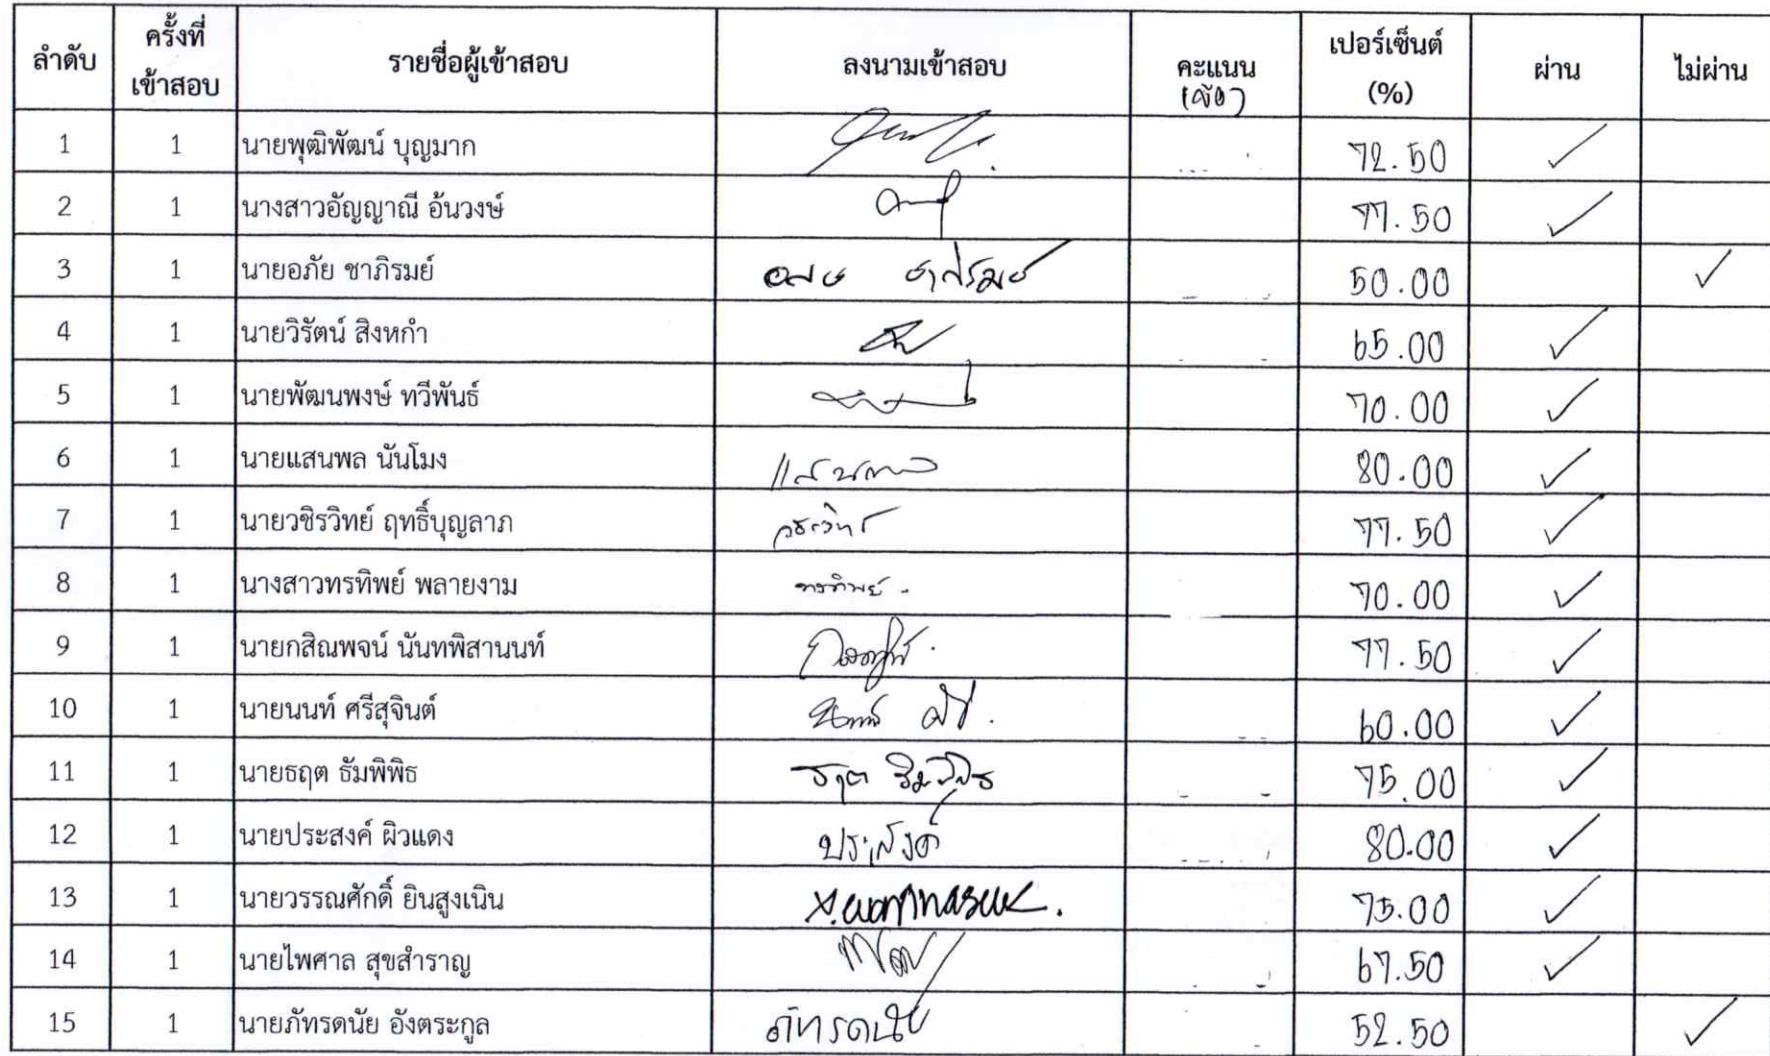 ลำดับ ครั้งที่เข้าสอบ รายชื่อผู้เข้าสอบ ลงนามเข้าสอบ คะแนน (ข้อ) เปอร์เซ็นต์ (%) ผ่าน ไม่ผ่าน
1 1 นายพุฒิพัฒน์ บุญมาก 72.50 ✓
2 1 นางสาวอัญญาณี อ้นวงษ์ 77.50 ✓
3 1 นายอภัย ชาภิรมย์ อภัย ชาภิรมย์ 50.00 ✓
4 1 นายวิรัตน์ สิงหกำ 65.00 ✓
5 1 นายพัฒนพงษ์ ทวีพันธ์ 70.00 ✓
6 1 นายแสนพล นันโมง แสนพล 80.00 ✓
7 1 นายวชิรวิทย์ ฤทธิ์บุญลาภ วชิรวิทย์ 77.50 ✓
8 1 นางสาวทรทิพย์ พลายงาม ทรทิพย์ 70.00 ✓
9 1 นายกสิณพจน์ นันทพิสานนท์ 77.50 ✓
10 1 นายนนท์ ศรีสุจินต์ 60.00 ✓
11 1 นายธฤต ธัมพิพิธ ธฤต ธัมพิพิธ 75.00 ✓
12 1 นายประสงค์ ผิวแดง ประสงค์ 80.00 ✓
13 1 นายวรรณศักดิ์ ยินสูงเนิน 75.00 ✓
14 1 นายไพศาล สุขสำราญ 67.50 ✓
15 1 นายภัทรดนัย อังตระกูล ภัทรดนัย 52.50 ✓